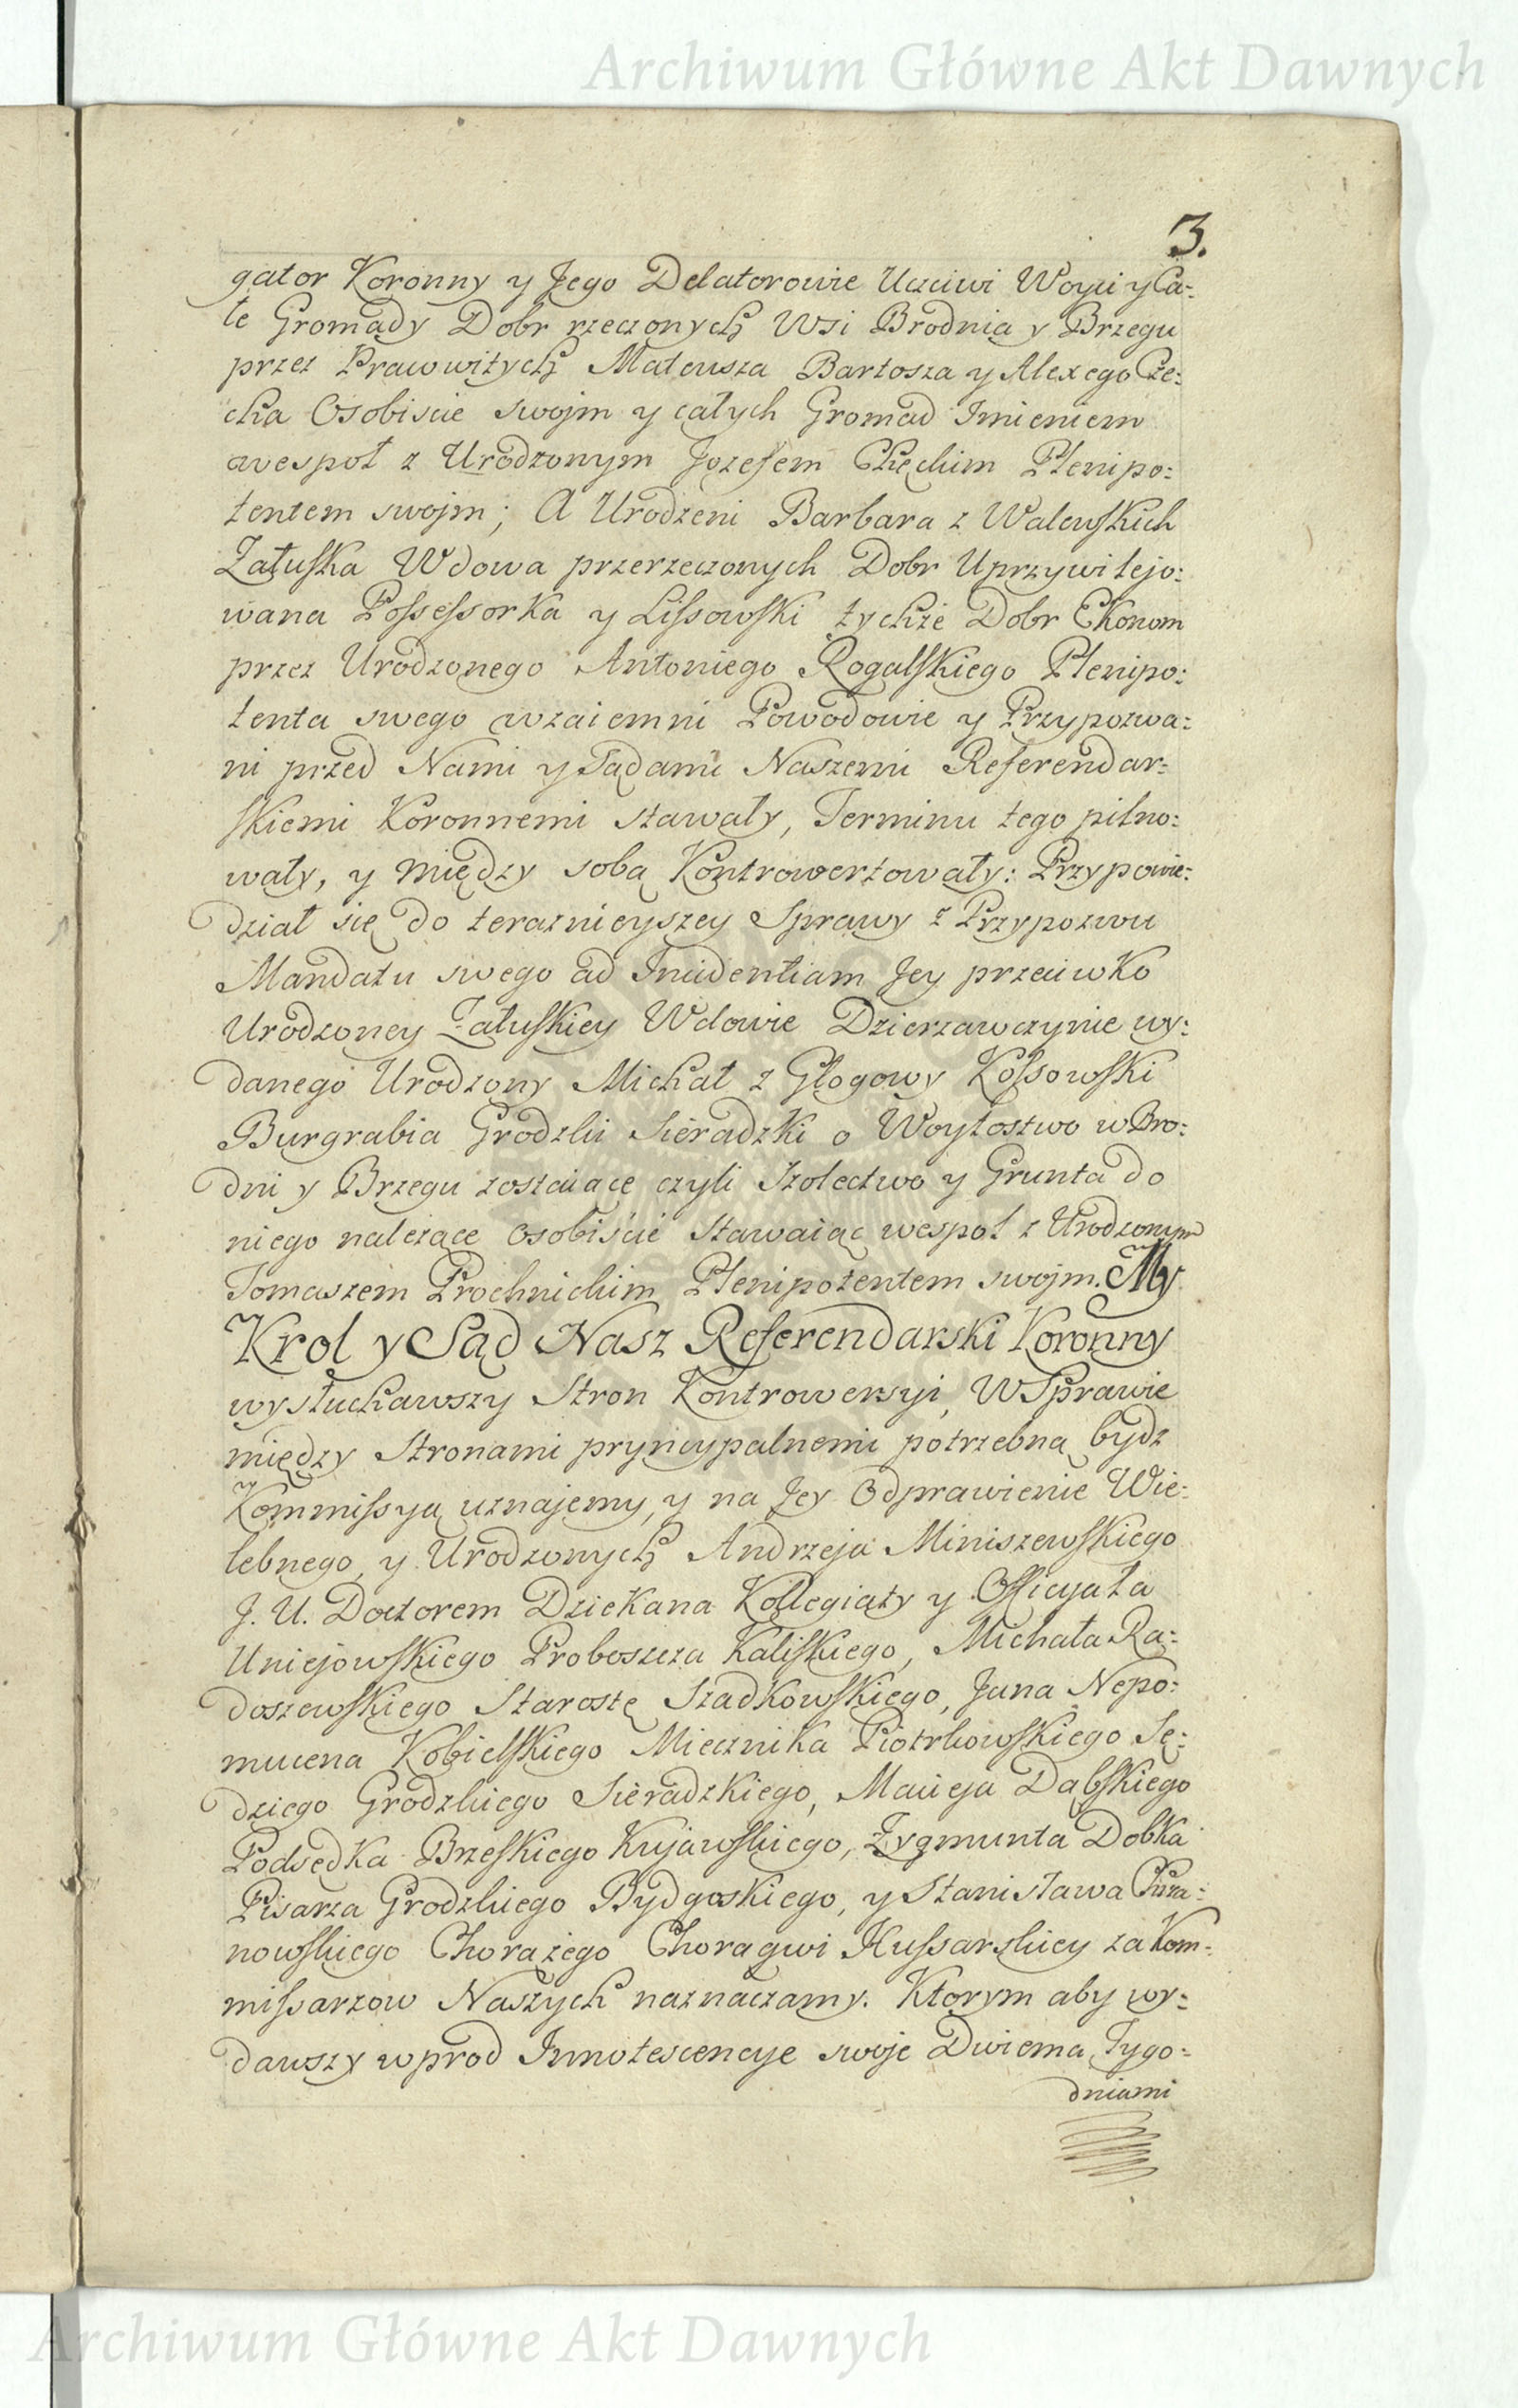 Archiwum Główne Akt Dawnych
3.
gator Koronny y Jego Delatorowie Uczciwi Woyci y Ca:
łe Gromady Dobr rzeczonych Wsi Brodnia y Brzegu
przez Prawowitych Mateusza Bartosza y Alexego Cze:
cha Osobiscie swojm y całych Gromad Imieniem
wespoł z Urodzonym Jozefem Chęckim Plenipo:
tentem swojm; A Urodzeni Barbara z Walewskich
Załuska Wdowa przerzeczonych Dobr Uprzywilejo:
wana Possessorka y Lissowski tychże Dobr Ekonom
przez Urodzonego Antoniego Rogalskiego Plenipo:
tenta swego wzaiemni Powodowie y Przypozwa:
ni przed Nami y Sądami Naszemi Referendar:
skiemi Koronnemi stawały, Terminu tego pilno:
wały, y między sobą Kontrowertowały: Przypowie:
dział się do teraznieyszey Sprawy z Przypozwu
Mandatu swego ad Incidentiam Jey przeciwko
Urodzoney Załuskiey Wdowie Dzierzawczynie wy:
danego Urodzony Michał z Głogowy Kossowski
Burgrabia Grodzki Sieradzki o Woytostwo w Bro:
dni y Brzegu zostaiące czyli Szołectwo y Grunta do
niego należące osobiście stawaiąc wespoł z Urodzonym
Tomaszem Prochnickim Plenipotentem swojm. My
Krol y Sąd Nasz Referendarski Koronny
wysłuchawszy Stron Kontrowersyi, W Sprawie
między Stronami pryncypalnemi potrzebną bydz
Kommissyą uznajemy, y na Jey Odprawienie Wie:
lebnego, y Urodzonych Andrzeja Miniszewskiego
J. U. Doctorem Dziekana Kollegiaty y Officyała
Uniejowskiego Proboszcza Kaliskiego, Michała Ra:
doszewskiego Starostę Szadkowskiego, Jana Nepo:
mucena Kobielskiego Miecznika Piotrkowskiego Sę:
dziego Grodzkiego Sieradzkiego, Macieja Dąbskiego
Podsędka Brzeskiego Kujawskiego, Zygmunta Dobka
Pisarza Grodzkiego Bydgoskiego, y Stanisława
nowskiego Chorążego Chorągwi Hussarskiey za Kom:
missarzow Naszych naznaczamy. Ktorym aby wy:
dawszy wprod Innotescencye swoje Dwiema Tygo:
dniami
Archiwum Główne Akt Dawnych